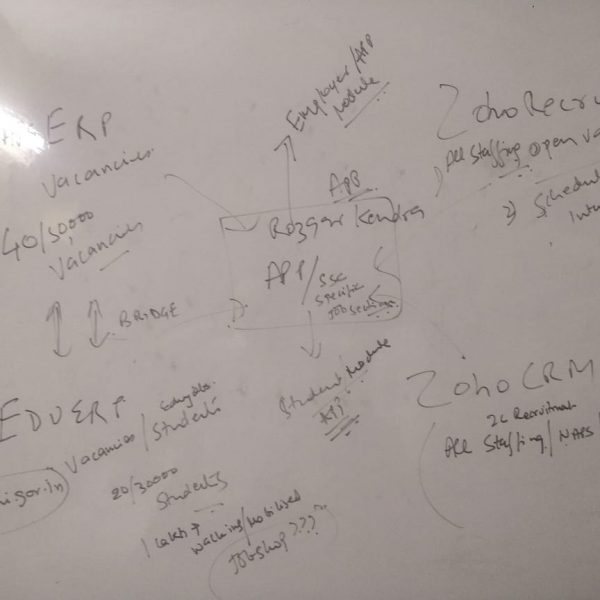 ERP
Vacancies
40/50000
Vacancies
BRIDGE
EDUERP
Vacancies/
Students
20/30000
Students
1 Lakh+
Jobshop???
Employer/
Module
APP
Rozgar Kendra
APP/SSC
Specific
Job Sections
Student Module
APP
Zoho Recru
All Staffing open va
2) Schedul
Inter
Zoho CRM
2L Recruitment
All Staffing/NAPS/